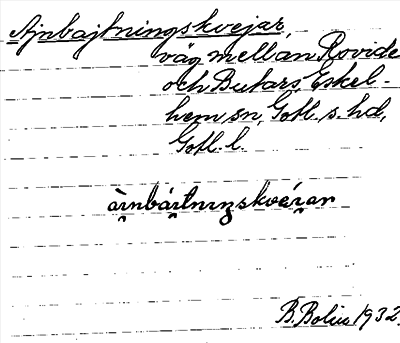 Ajnbajtningskvejar,
väg mellan Rovide
och Butars, Eskel-
hem sn, Gotl. s. hd,
Gotl. l.
àı̯nbáı̯tnıŋskvéı̯ar
B. Bolin 1932.